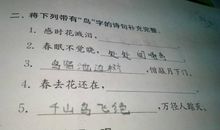 二、将下列带有“鸟”字的诗句补充完整。
1. 感时花溅泪，
2. 春眠不觉晓，处处闻啼鸟
3. 鸟宿池边树，僧敲月下门。
4. 春去花还在，
5. 千山鸟飞绝，万径人踪灭。